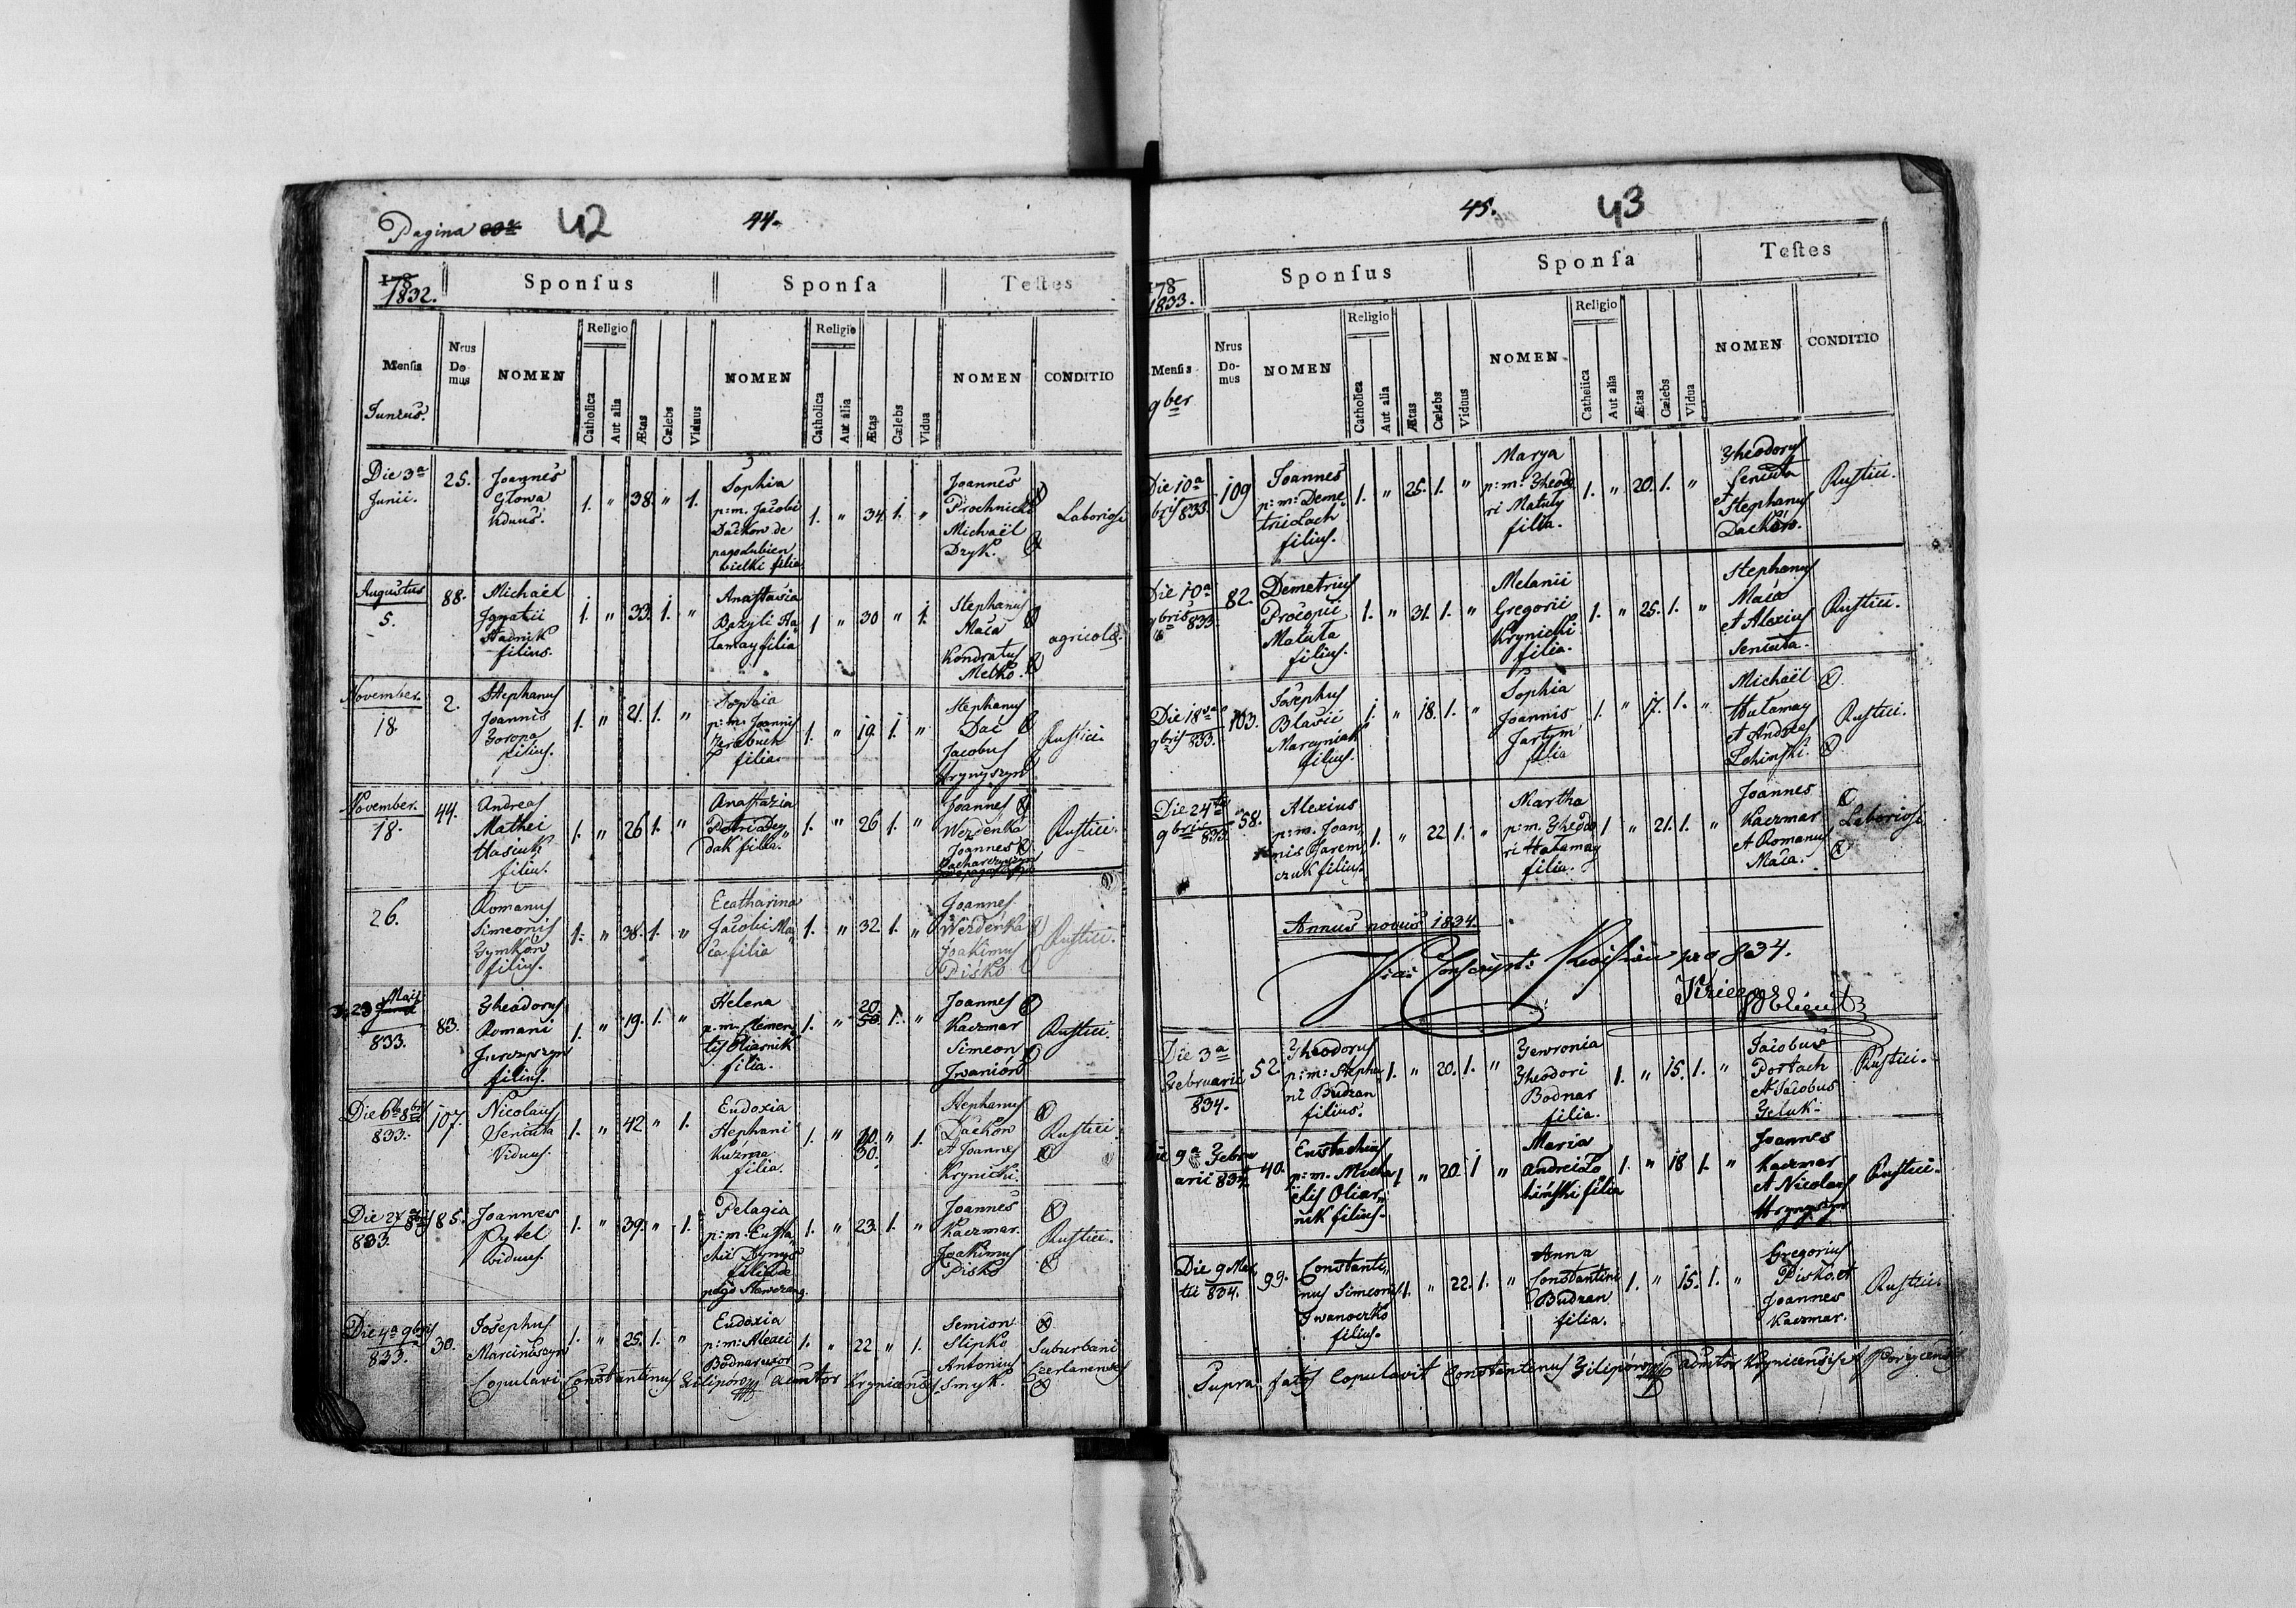 Pagina 42 44.
178
1832.
Sponſus Sponſa Teſtes
Menſis
Junius.
Nrus
Do-
mus
NOMEN
Religio
Catholica
Aut alia
Ætas
Cælebs
Viduus
NOMEN
Religio
Catholica
Aut alia
Ætas
Cælebs
Vidua
NOMEN
CONDITIO
Die 3a
Junii.
25.
Joannes
Głowa
viduus.
1. " 38. " 1.
Sophia
p:m. Jacobi
Dackow de
pago Lubien
wielki filia
1. " 34. 1. "
Joannes
Prochnicki
Michaël
Dzyk.
Laboriosi
Augustus
5.
88.
Michaël
Ignatii
Hadnik
filius.
1. " 33. 1. "
Anastasia
Bazyli Ha
łamay filia
1 " 30 " 1.
Stephanus
Maca
Kondratus
Melko.
agricolæ.
November.
18.
2.
Stephanus
Joannis
filius.
1. " 21. 1. "
Sophia
p:m: Joannis
filia.
1. " 19. 1. "
Stephanus
Dac
Jacobus
Hrynyszyn
Rustici.
November.
18.
44.
Andreas
Mathei
Hasiuk
filius.
1. " 26 1. "
Anastazia
Petri Dey
dak filia.
1. " 26 1. "
Joannes
Werdenka
Joannes
Rustici.
26.
Romanus
Simeonis
Zymkow
filius.
1. " 38. 1. "
Ecatharina
Jacobi Ma
ca filia
1. " 32 1. "
Joannes
Werdenka
Joakimus
Pisko
Rustici.
D. 29 Maij
833.
83.
Theodorus
Romani
Jurczyszyn
filius.
1. " 19. 1. "
Helena
p:m. Klemen
tis Oliarnik
filia.
1. " 20 1. "
Joannes
Kaczmar
Simeon
Iwaniow
Rustici.
Die 6ta 8bris
833.
107.
Nicolaus
Seniuta
Viduus.
1. " 42 " 1.
Eudoxia
Stephani
Kuzma
filia.
1. " 30. " 1.
Stephanus
Dackow
et Joannes
Krynicki.
Rustici.
Die 27 8bris
833.
85.
Joannes
Pytel
viduus.
1. " 39. " 1.
Pelagia
p:m. Eusta
chii Hynys
filia de
pago Stawczany.
1. " 23. 1. "
Joannes
Kaczmar.
Joakimus
Pisko
Rustici.
Die 4a 9bris
833.
30.
Josephus
Marciniszyn
1. " 25. 1. "
Eudoxia
p:m: Alexei
Bodnar uxor
1. " 22 " 1.
Semion
Slipko
Antonius
Smyk.
Suburbani
Czerlanenses
Copulavi Constantinus Filipowszy Admtor Krynicensis
45. 43
178
1833.
Sponſus Sponſa Teſtes
Menſis
9ber
Nrus
Do-
mus
NOMEN
Religio
Catholica
Aut alia
Ætas
Cælebs
Viduus
NOMEN
Religio
Catholica
Aut alia
Ætas
Cælebs
Vidua
NOMEN
CONDITIO
Die 10a
bris 833.
109
Joannes
p:m: Deme
trii Lach
filius.
1. " 25. 1. "
Marya
p:m: Theodo
ri Matuły
filia.
1. " 20. 1. "
Theodorus
Seniuta
et Stephanus
Dackow.
Rustici.
Die 10a
9bris 833
82.
Demetrius
Procopii
Matuła
filius.
1. " 31. 1. "
Melanii
Gregorii
Krynicki
filia.
1. " 25. 1. "
Stephanus
Maca
et Alexius
Seniuta.
Rustici.
Die 18va
9bris 833.
103.
Josephus
Blasii
Marcyniak
filius.
1. " 18. 1. "
Sophia
Joannis
Jartym
filia
1. " 17. 1. "
Michaël
Hułamay
et Andreas
Lchinski.
Rustici.
Die 24ta
9bris 833
58.
Alexius
p:m. Joan
nis Jarem
czuk filius
1. " 22 1. "
Martha
p:m. Theodo
ri Hałamay
filia.
1 " 21. 1. "
Joannes
Kaczmar
et Romanus
Maca.
Laboriosi
Annus novus 1834.
pro 834.
Die 3a
Februarii
834.
52.
Theodorus
p:m: Stepha
ni Budzan
filius.
1. " 20. 1. "
Fewronia
Theodori
Bodnar
filia.
1. " 15. 1. "
Jacobus
Portach
et Jacobus
Feluk.
Rustici.
Die 9a Febru
arii 834.
40.
Eustachius
p:m. Micha
elis Oliar
nik filius.
1 " 20. 1 "
Maria
Andrei Lo
hinski filia
1. " 18 1. "
Joannes
Kaczmar
et Nicolaus
Hrynyszyn
Rustici.
Die 9 Mar
tii 834.
99.
Constanti
nus Simeonis
Iwanoczko
filius.
1. " 22. 1. "
Anna
Constantini
Budzan
filia.
1. " 15. 1. "
Gregorius
Pisko et
Joannes
Kaczmar.
Rustici.
Supra fatos Copulavit Constantinus Filipowszy Admtor Krynicensis et Porzycensis